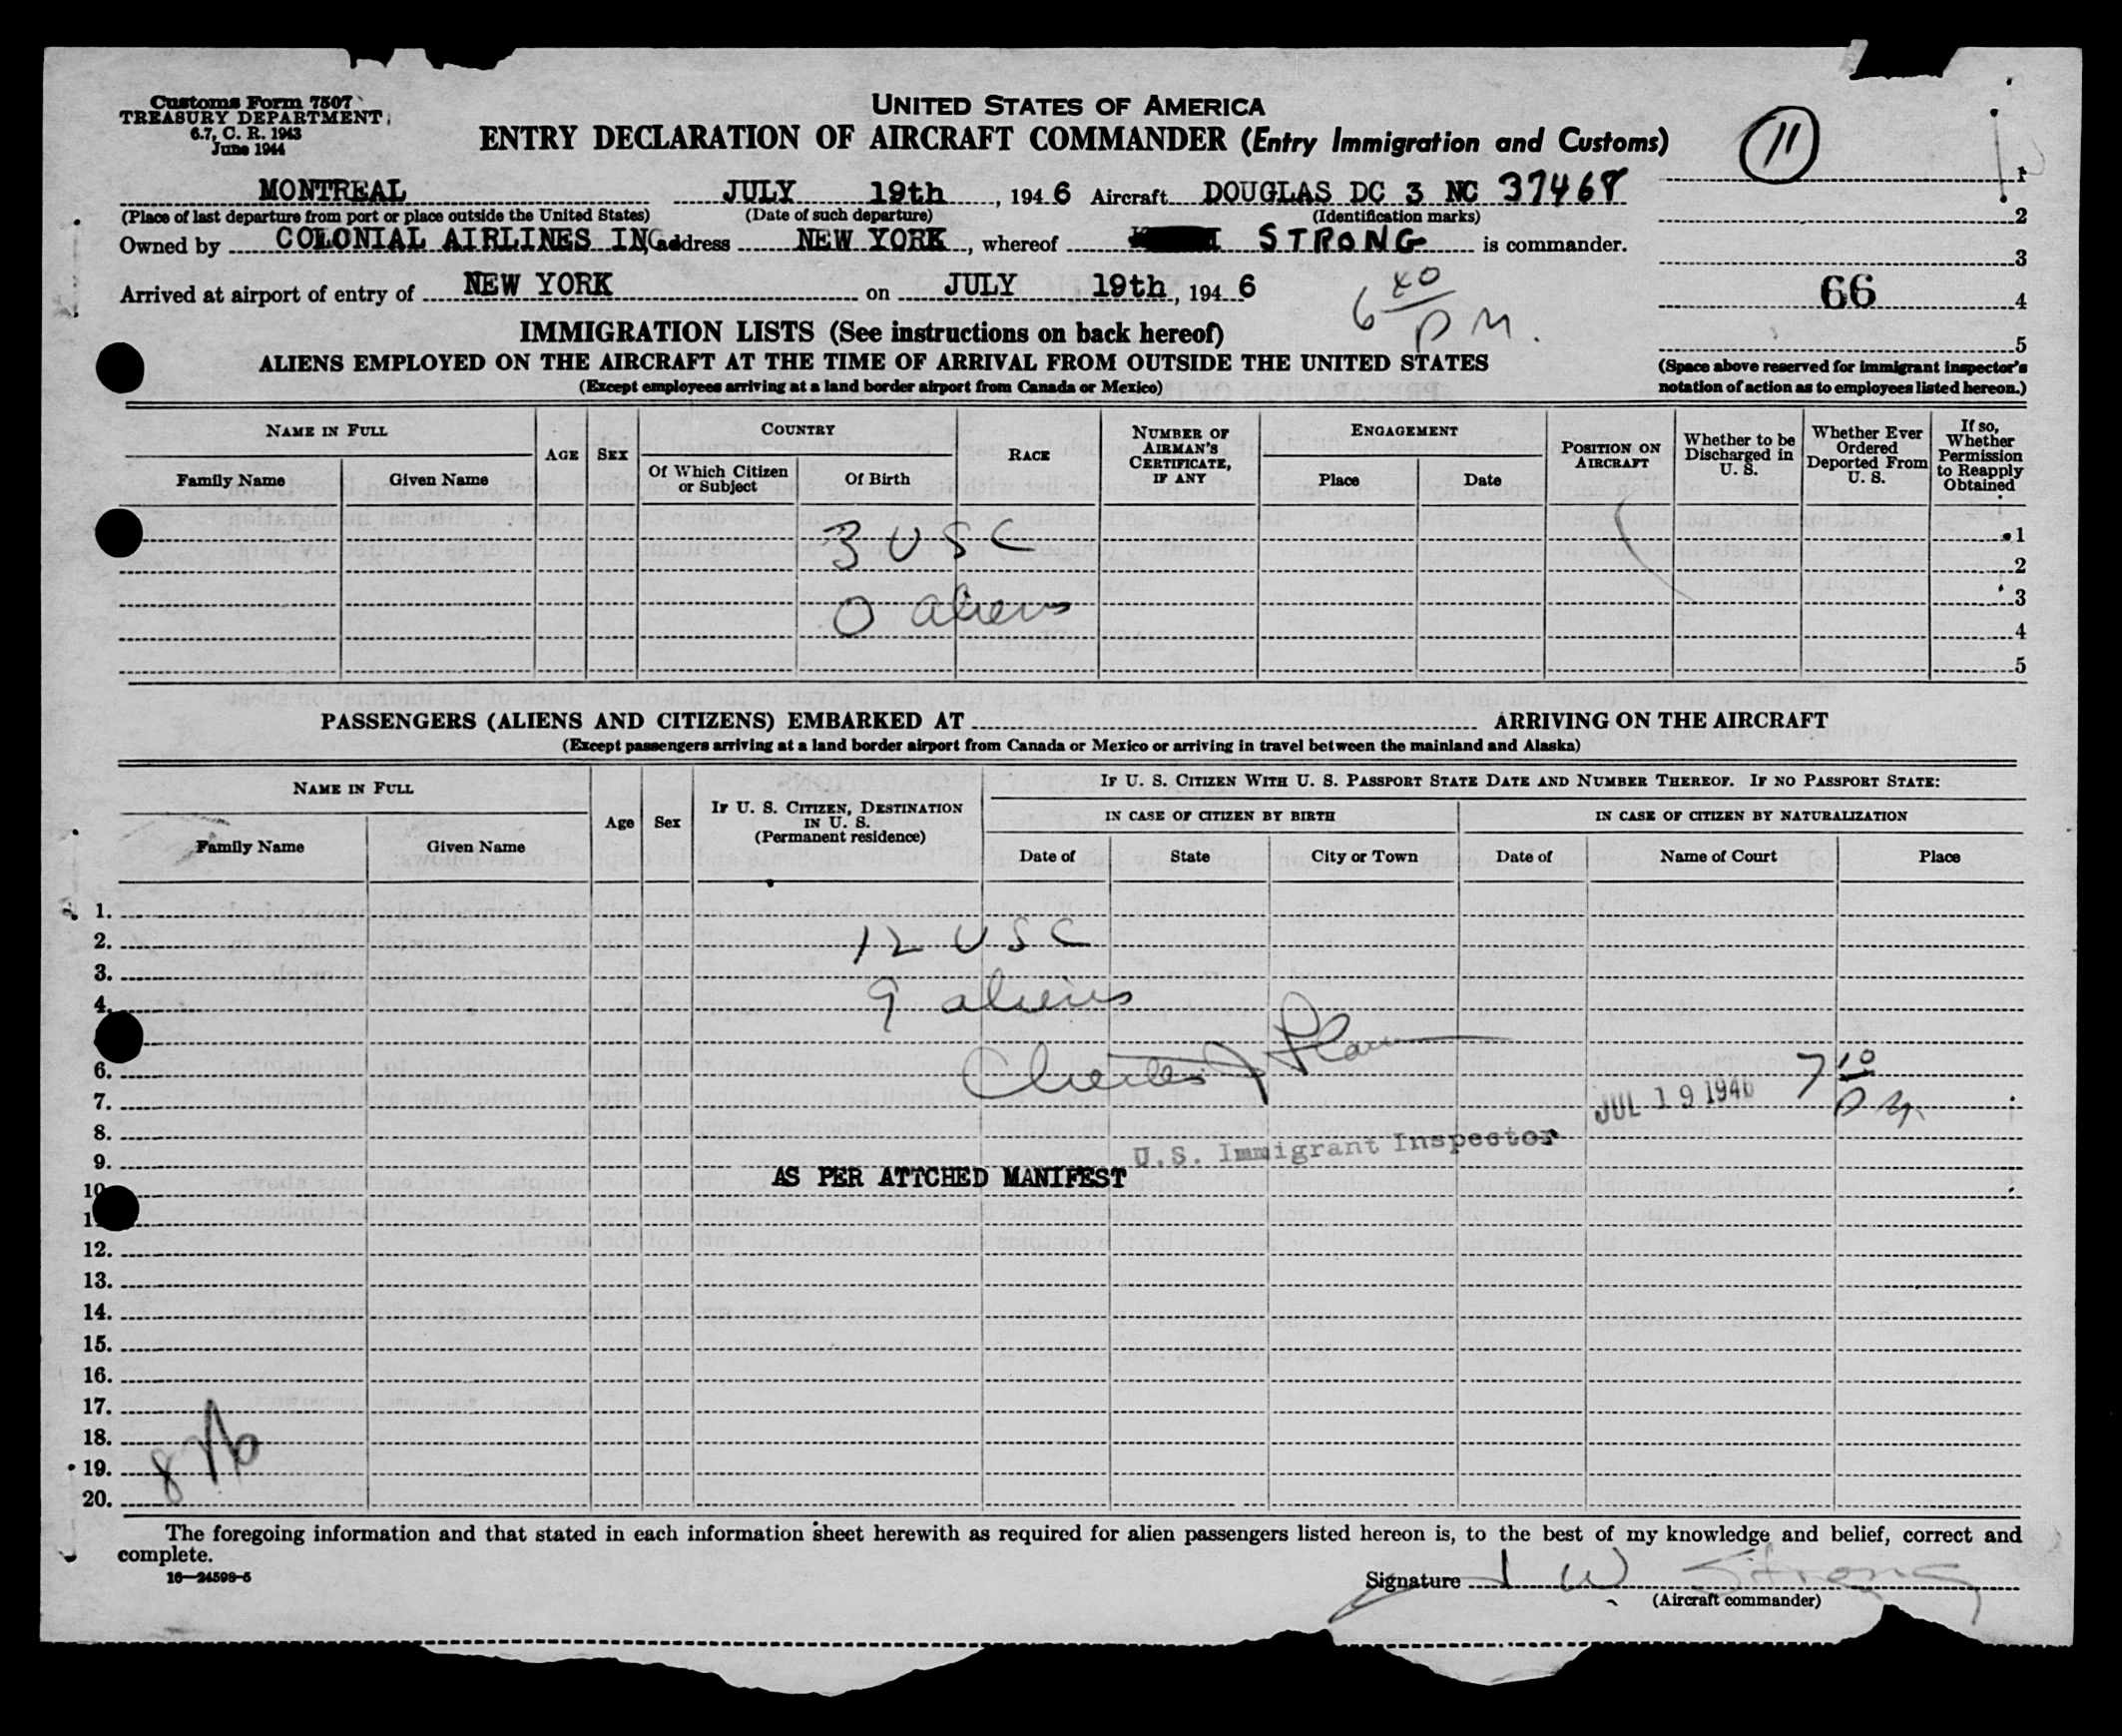 Customs Form 7507
TREASURY DEPARTMENT
6.7, C. R. 1943
June 1944
UNITED STATES OF AMERICA
ENTRY DECLARATION OF AIRCRAFT COMMANDER (Entry Immigration and Customs)
11
MONTREAL JULY 19th, 1946 Aircraft DOUGLAS DC 3 NC 37468 1
(Place of last departure from port or place outside the United States) (Date of such departure) (Identification marks) 2
Owned by COLONIAL AIRLINES INC address NEW YORK, whereof STRONG is commander.
3
Arrived at airport of entry of NEW YORK on JULY 19th, 1946 66 4
6 40 PM.
IMMIGRATION LISTS (See instructions on back hereof) 5
ALIENS EMPLOYED ON THE AIRCRAFT AT THE TIME OF ARRIVAL FROM OUTSIDE THE UNITED STATES
(Space above reserved for immigrant inspector's
(Except employees arriving at a land border airport from Canada or Mexico)
notation of action as to employees listed hereon.)
NAME IN FULL
Family Name Given Name
AGE SEX
COUNTRY
Of Which Citizen or Subject Of Birth
RACE
NUMBER OF AIRMAN'S CERTIFICATE, IF ANY
ENGAGEMENT
Place Date
POSITION ON AIRCRAFT
Whether to be Discharged in U. S.
Whether Ever Ordered Deported From U. S.
If so, Whether Permission to Reapply Obtained
3 USC 1
2
0 aliens 3
4
5
PASSENGERS (ALIENS AND CITIZENS) EMBARKED AT ARRIVING ON THE AIRCRAFT
(Except passengers arriving at a land border airport from Canada or Mexico or arriving in travel between the mainland and Alaska)
NAME IN FULL
Family Name Given Name
Age Sex
IF U. S. CITIZEN, DESTINATION IN U. S.
(Permanent residence)
IF U. S. CITIZEN WITH U. S. PASSPORT STATE DATE AND NUMBER THEREOF. IF NO PASSPORT STATE:
IN CASE OF CITIZEN BY BIRTH IN CASE OF CITIZEN BY NATURALIZATION
Date of State City or Town Date of Name of Court Place
1.
2. 12 USC
3.
4. 9 aliens
6. Charles J 7 10 PM
7. JUL 19 1946
8. U.S. Immigrant Inspector
9.
AS PER ATTCHED MANIFEST
10
1
12.
13.
14.
15.
16.
17.
18.
19.
20.
The foregoing information and that stated in each information sheet herewith as required for alien passengers listed hereon is, to the best of my knowledge and belief, correct and
complete.
16—24598-5
Signature J W Strong
(Aircraft commander)